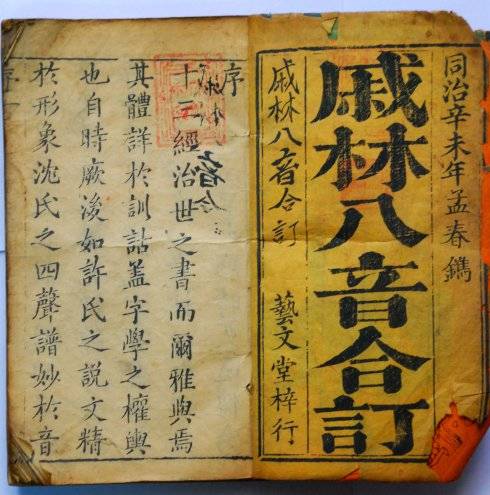 同治辛未年孟春鐫
戚林八音合訂
戚林八音合訂
藝文堂梓行
序
十三經治世之書而爾雅與焉
其體詳扵訓詁葢字學之權輿
也自時厥後如許氏之說文精
扵形象沈氏之四聲譜妙扵音
序